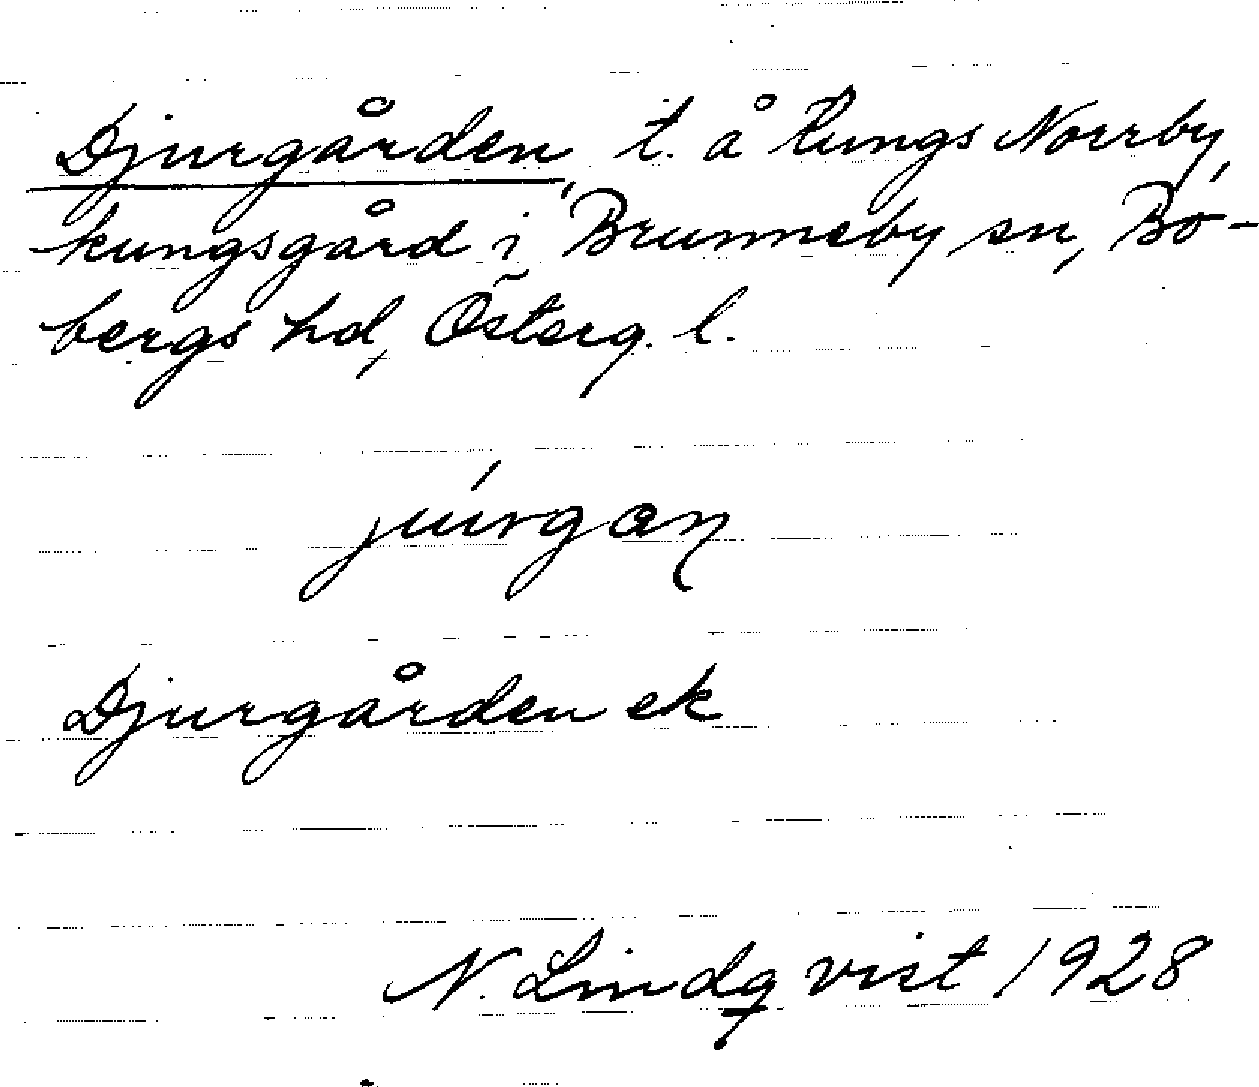 Djurgården, t. å Kungs Norrby,
kungsgård i Brunneby sn, Bo-
bergs hd, Österg. l.
júrgan
Djurgården ek
N. Lindqvist 1928